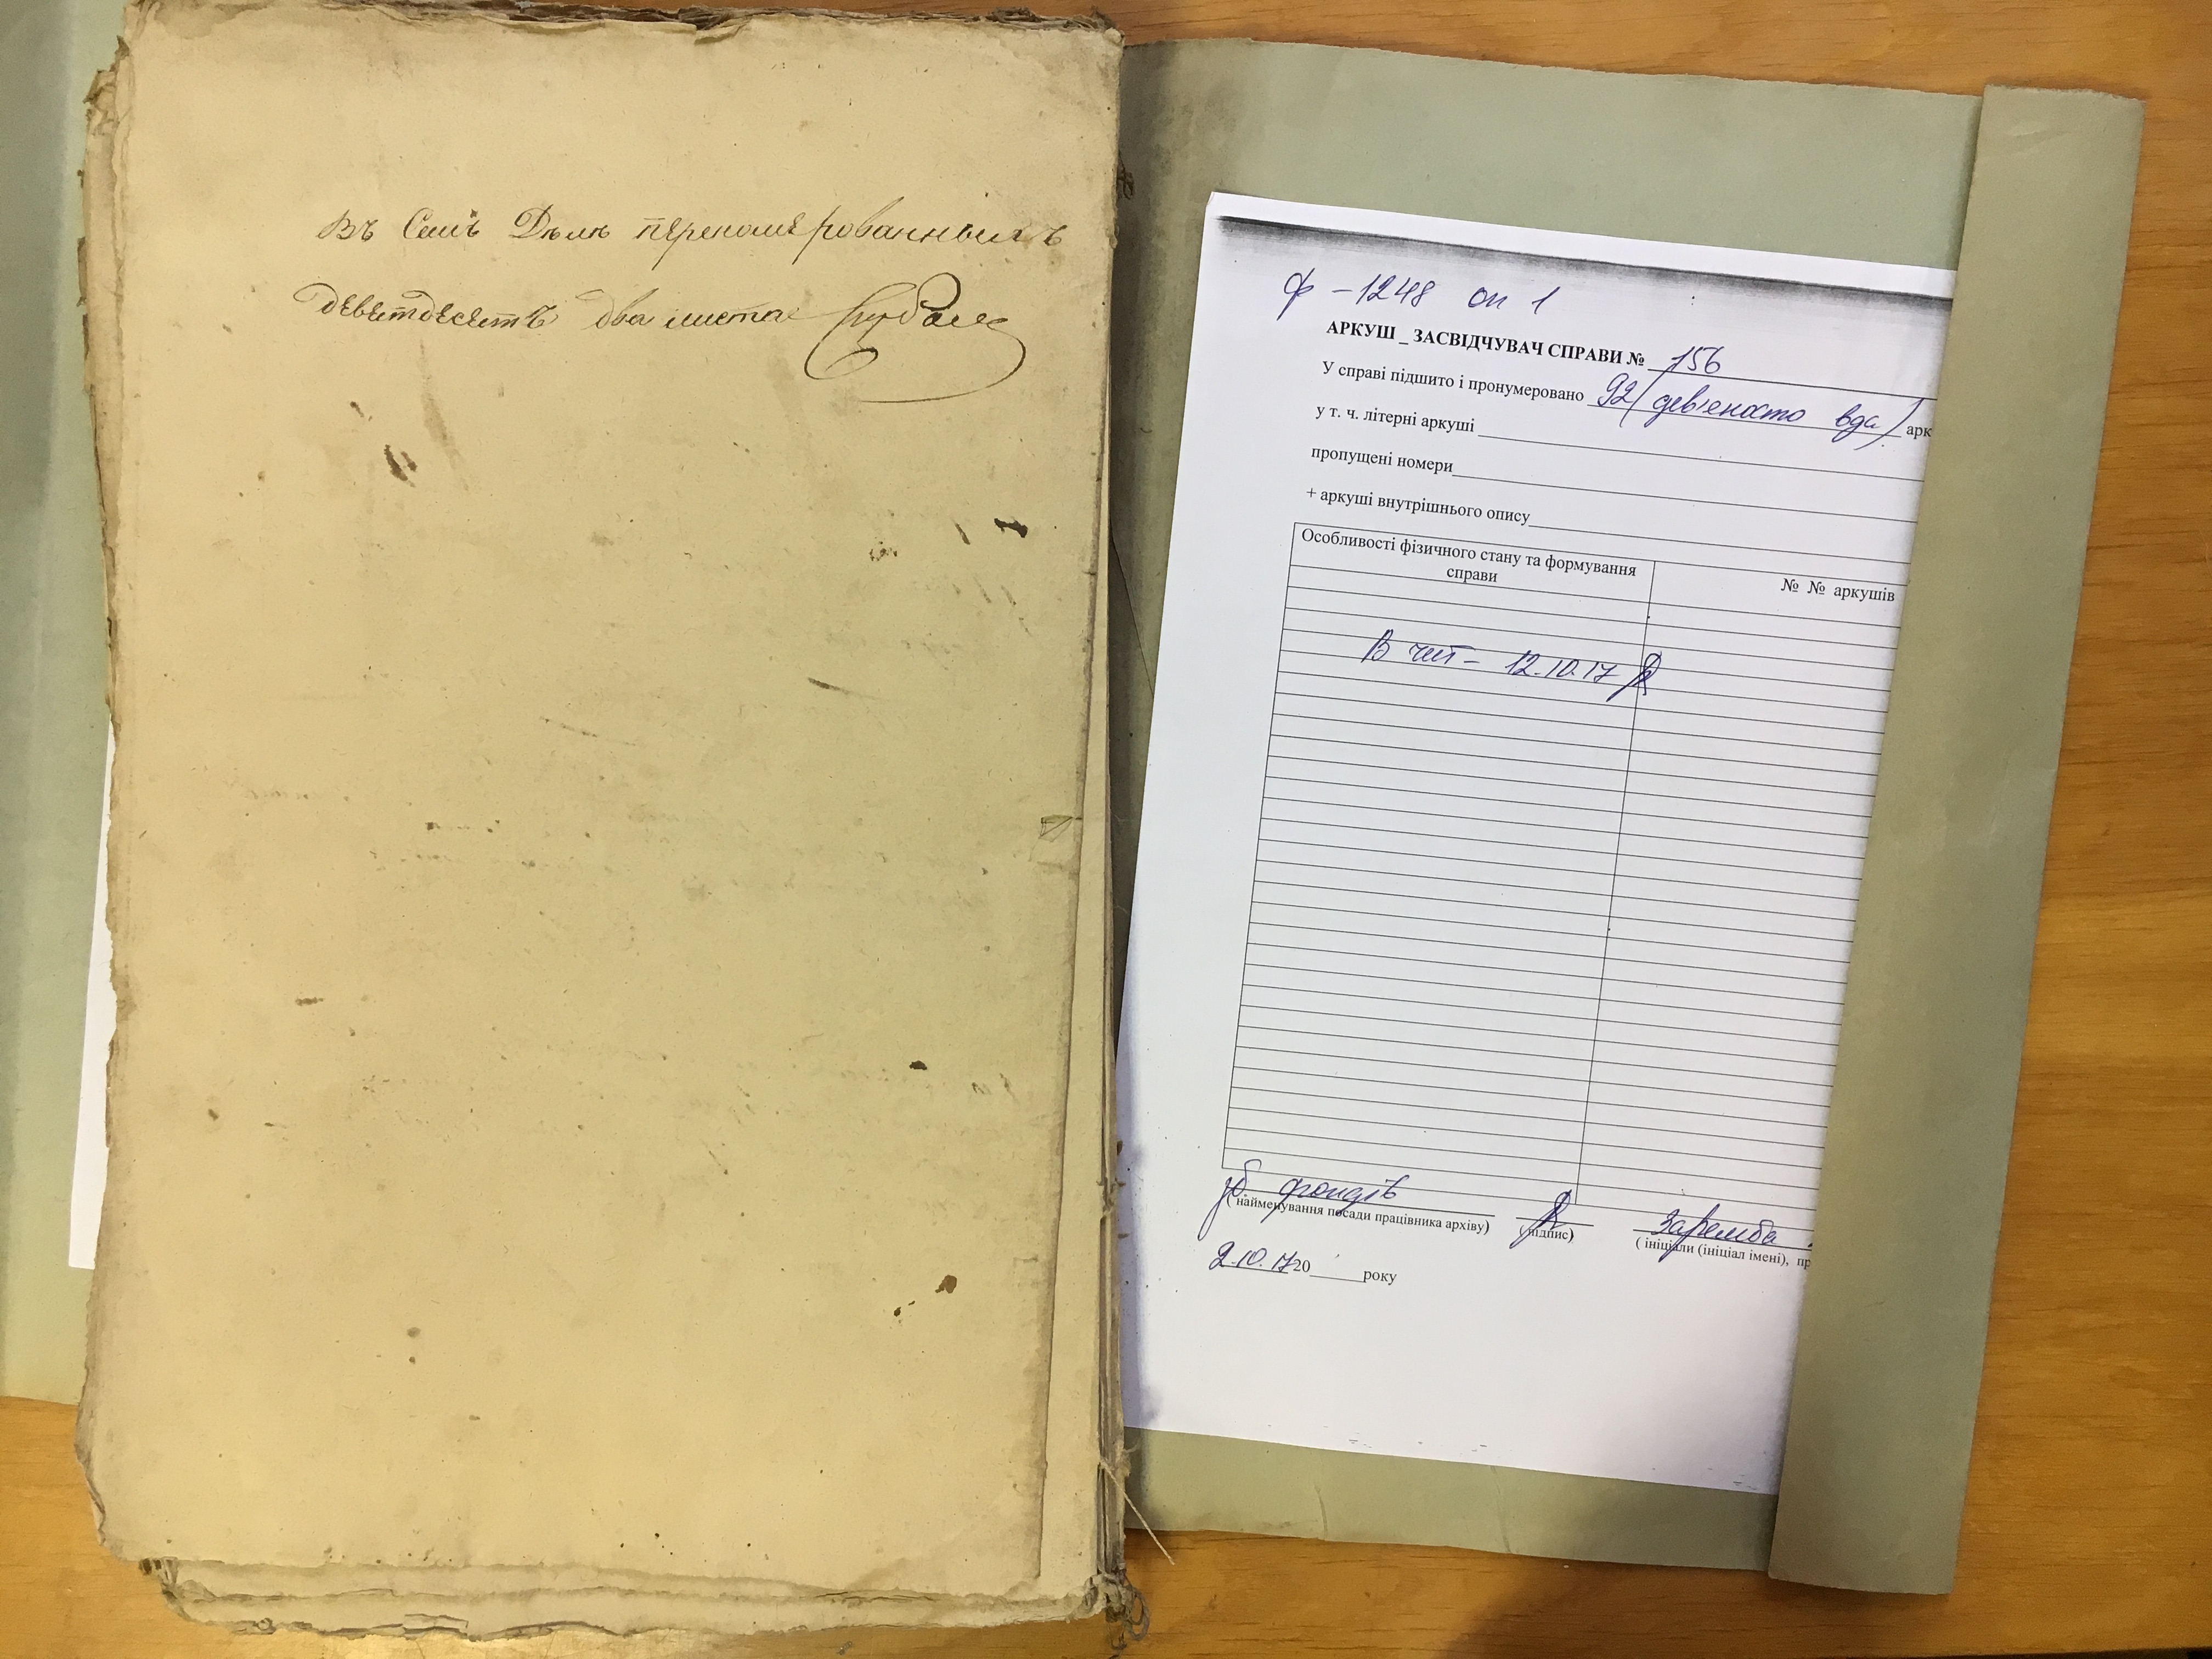 Въ Семъ Дѣлѣ перенумерованныхъ
деветдесетъ два листа
ф - 1248 оп 1
АРКУШ _ ЗАСВІДЧУВАЧ СПРАВИ № 156
У справі підшито і пронумеровано 92 (дев'яносто вда) арк
у т. ч. літерні аркуші
пропущені номери
+ аркуші внутрішнього опису
Особливості фізичного стану та формування
справи
№ № аркушів
В чит - 12.10.17
фондів
Заремба
( найменування посади працівника архіву)
(підпис)
( ініціали (ініціал імені), пр
2.10.17 20 року